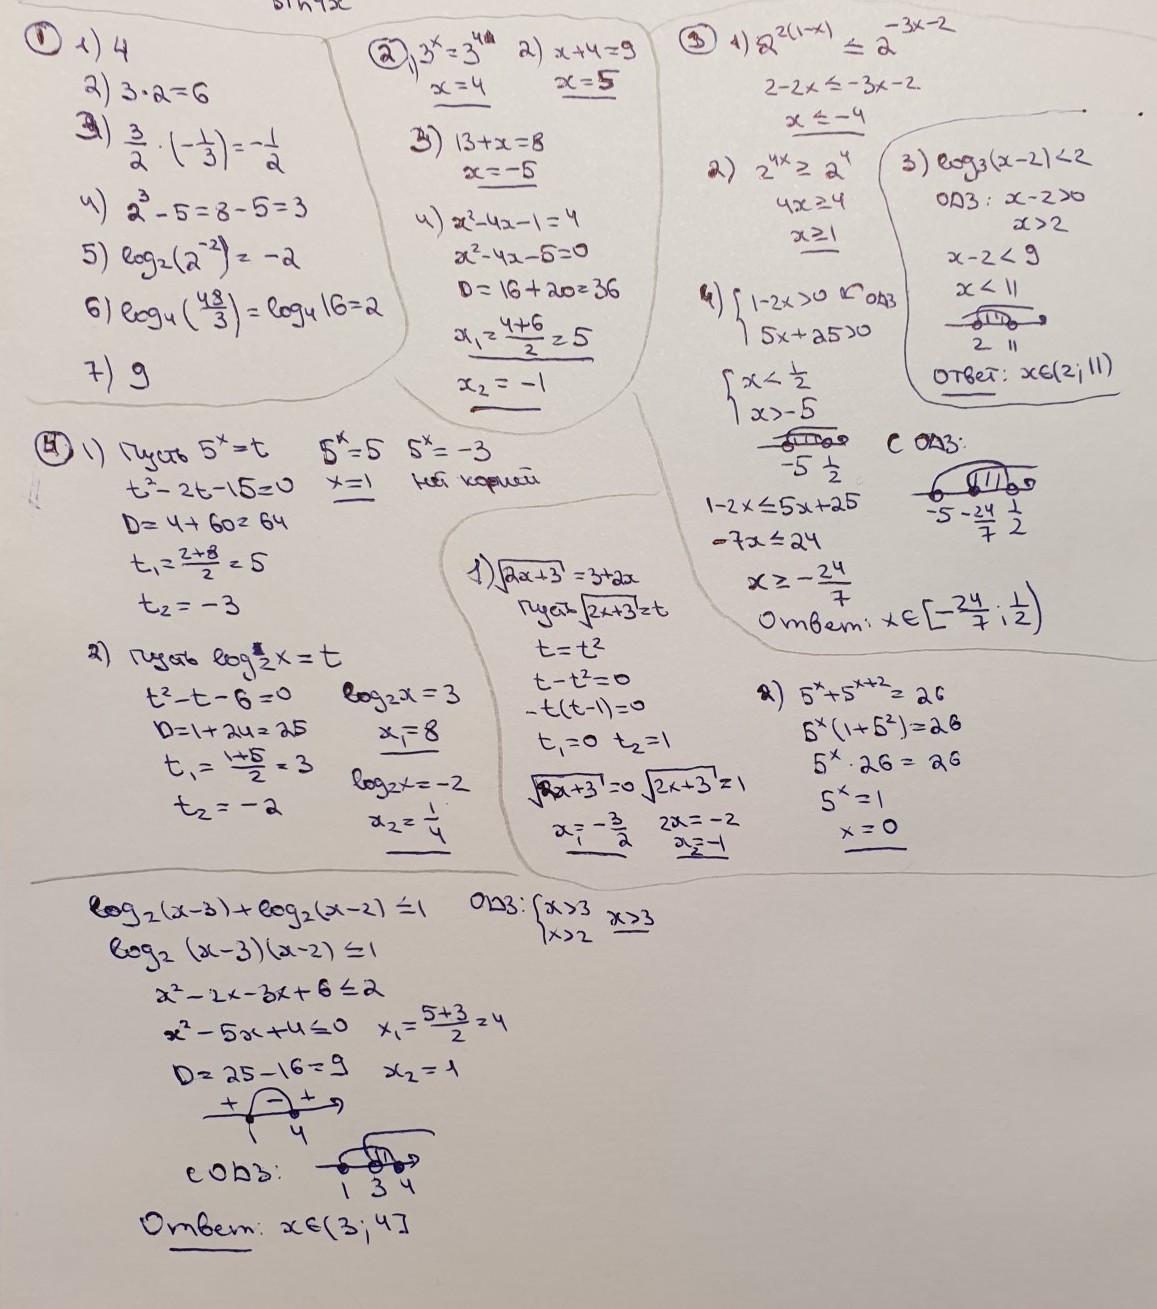 sin4x
① 1) 4
2) 3·2=6
3) 3/2 · (-1/3) = -1/2
4) 2³ - 5 = 8 - 5 = 3
5) log₂(2⁻²) = -2
6) log₄(48/3) = log₄16 = 2
7) 9
② 1) 3ˣ = 3⁴
x=4
2) x+4=9
x=5
3) 13+x=8
x=-5
4) x²-4x-1=4
x²-4x-5=0
D=16+20=36
x₁=(4+6)/2=5
x₂=-1
③ 1) 2^(2(1-x)) ≤ 2^(-3x-2)
2-2x≤-3x-2
x≤-4
2) 2^(4x) ≥ 2⁴
4x≥4
x≥1
3) log₃(x-2)<2
ОДЗ: x-2>0
x>2
x-2<9
x<11
2 11
Ответ: x∈(2;11)
4) { 1-2x>0 ← ОДЗ
5x+25>0
{ x<1/2
x>-5
-5 1/2
1-2x≤5x+25
-7x≤24
x≥-24/7
с ОДЗ:
-5 -24/7 1/2
Ответ: x∈[-24/7; 1/2)
④ 1) Пусть 5ˣ=t
t²-2t-15=0
D=4+60=64
t₁=(2+8)/2=5
t₂=-3
5ˣ=5
x=1
5ˣ=-3
нет корней
2) Пусть log₂x=t
t²-t-6=0
D=1+24=25
t₁=(1+5)/2=3
t₂=-2
log₂x=3
x₁=8
log₂x=-2
x₂=1/4
1) √(2x+3)=3+2x
Пусть √(2x+3)=t
t=t²
t-t²=0
-t(t-1)=0
t₁=0 t₂=1
√(2x+3)=0 √(2x+3)=1
x₁=-3/2 2x=-2
x₂=-1
2) 5ˣ+5ˣ⁺²=26
5ˣ(1+5²)=26
5ˣ·26=26
5ˣ=1
x=0
log₂(x-3)+log₂(x-2)≤1 ОДЗ: { x>3
x>2
x>3
log₂(x-3)(x-2)≤1
x²-2x-3x+6≤2
x²-5x+4≤0 x₁=(5+3)/2=4
D=25-16=9 x₂=1
+ - +
1 4
с ОДЗ:
1 3 4
Ответ: x∈(3;4]